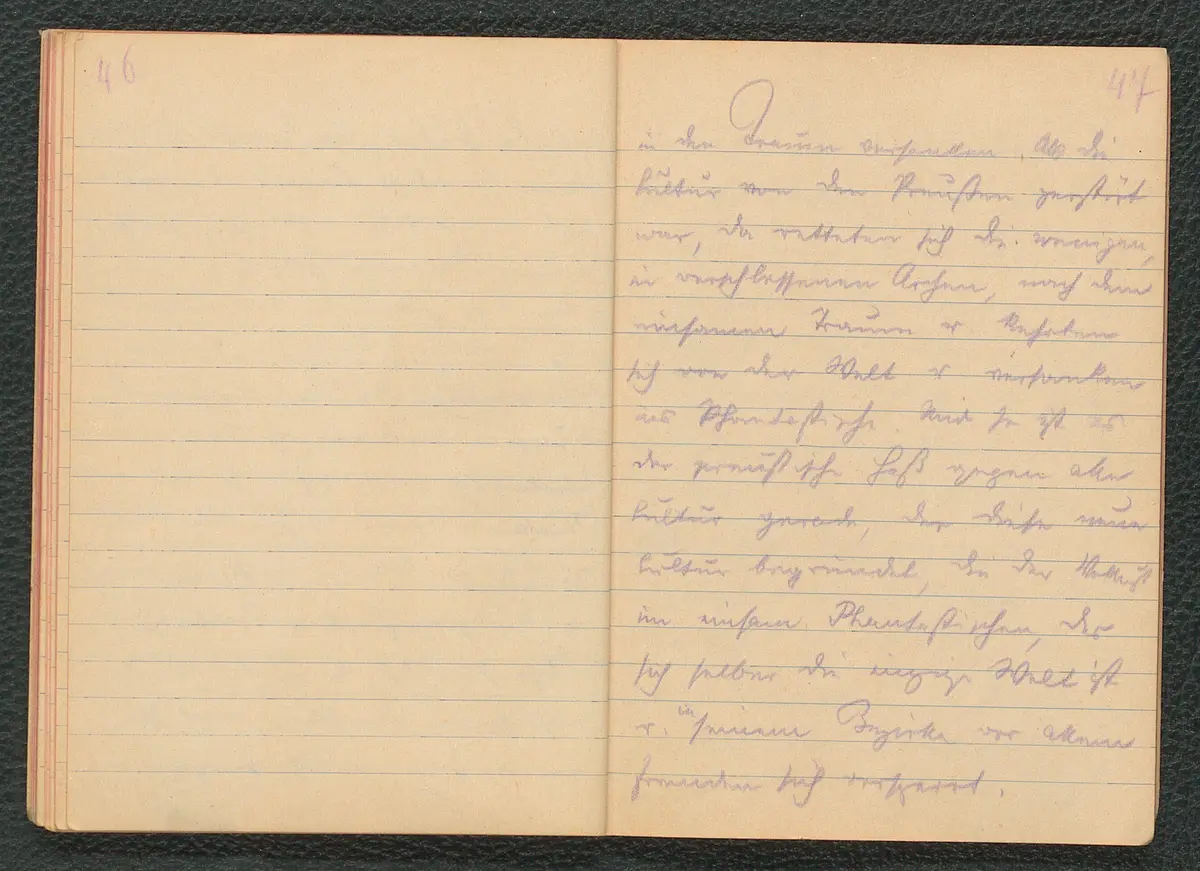 46
47
in den Traum versanken. Als die
Kultur von den Preußen zerstört
war, da retteten sich die wenigen,
in verschlossenen Archen, nach dem
einsamen Traum u. kehrten
sich von der Welt u. versanken
ins Phantastische. Und so ist es
der preußische Haß gegen alle
Kultur gerade, der diese neue
Kultur begründet, die der Wollust
im einsam Phantastischen, der
sich selber die einzige Welt ist
u. in seinem Bezirke vor allem
Fremden sich versperrt.